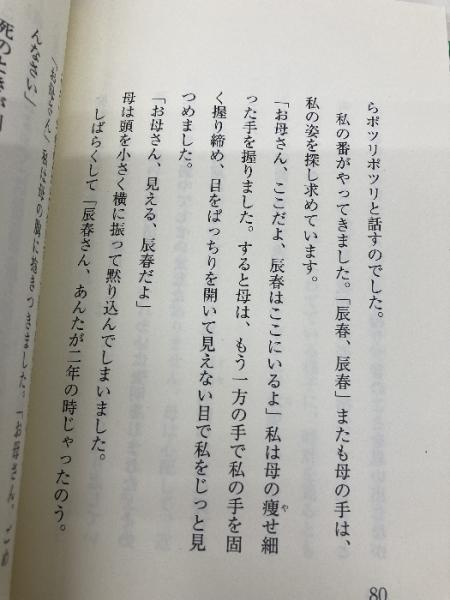 らポツリポツリと話すのでした。
私の番がやってきました。「辰春、辰春」またも母の手は、
私の姿を探し求めています。
「お母さん、ここだよ、辰春はここにいるよ」私は母の痩せ細
や
った手を握りました。すると母は、もう一方の手で私の手を固
く握り締め、目をぱっちりを開いて見えない目で私をじっと見
つめました。
「お母さん、見える、辰春だよ」
母は頭を小さく横に振って黙り込んでしまいました。
しばらくして「辰春さん、あんたが二年の時じゃったのう。
「お母さん」私は母の胸に抱きつきました。「お母さん、ごめ
んなさい」
死のときが
80